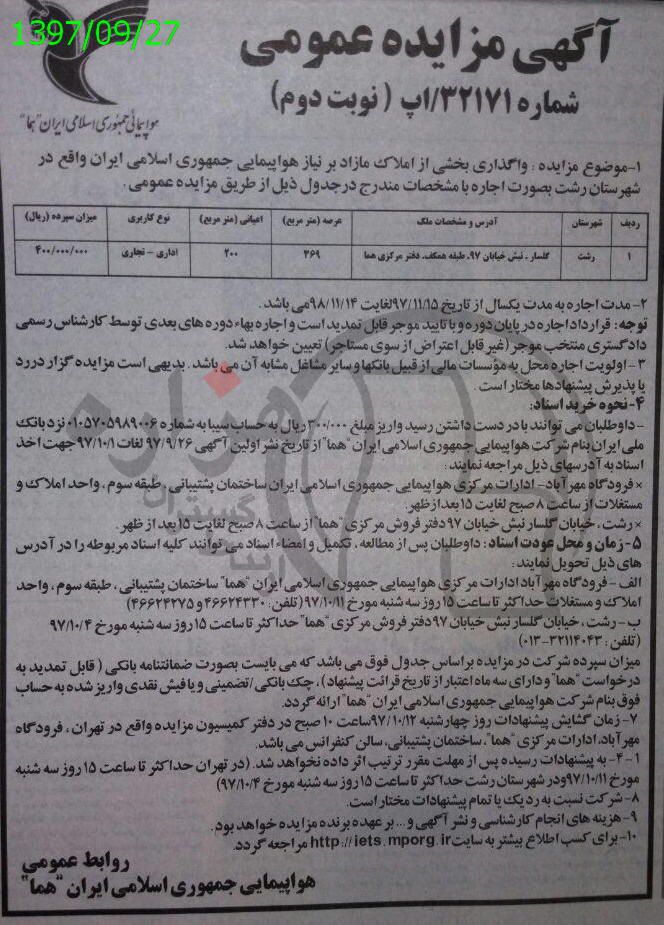 1397/09/27
آگهی مزایده عمومی
شماره ۳۲۱۷۱/اپ ( نوبت دوم)
هواپیمائی جمهوری اسلامی ایران "هما"
۱-موضوع مزایده : واگذاری بخشی از املاک مازاد بر نیاز هواپیمایی جمهوری اسلامی ایران واقع در
شهرستان رشت بصورت اجاره با مشخصات مندرج درجدول ذیل از طریق مزایده عمومی .
ردیف شهرستان آدرس و مشخصات ملک عرصه (متر مربع) اعیانی (متر مربع) نوع کاربری میزان سپرده (ریال)
۱ رشت گلسار ـ نبش خیابان ۹۷ـ طبقه همکف ـ دفتر مرکزی هما ۲۶۹ ۲۰۰ اداری - تجاری ۴۰۰/۰۰۰/۰۰۰
۲- مدت اجاره به مدت یکسال از تاریخ ۹۷/۱۱/۱۵لغایت ۹۸/۱۱/۱۴می باشد .
توجه : قرارداد اجاره در پایان دوره و با تایید موجر قابل تمدید است و اجاره بهاء دوره های بعدی توسط کارشناس رسمی
دادگستری منتخب موجر (غیر قابل اعتراض از سوی مستاجر) تعیین خواهد شد.
۳ - اولویت اجاره محل به مؤسسات مالی از قبیل بانکها و سایر مشاغل مشابه آن می باشد . بدیهی است مزایده گزار دررد
یا پذیرش پیشنهادها مختار است .
۴- نحوه خرید اسناد:
- داوطلبان می توانند با در دست داشتن رسید واریز مبلغ ۳۰۰/۰۰۰ریال به حساب سیبا به شماره ۰۱۰۵۷۰۵۹۸۹۰۰۶ نزد بانک
ملی ایران بنام شرکت هواپیمایی جمهوری اسلامی ایران "هما" از تاریخ نشر اولین آگهی ۹۷/۹/۲۶ لغات ۹۷/۱۰/۱جهت اخذ
اسناد به آدرسهای ذیل مراجعه نمایند :
× فرودگاه مهرآباد- ادارات مرکزی هواپیمایی جمهوری اسلامی ایران ساختمان پشتیبانی ، طبقه سوم ، واحد املاک و
مستغلات از ساعت ۸ صبح لغایت ۱۵ بعدازظهر.
× رشت ، خیابان گلسار نبش خیابان ۹۷ دفتر فروش مرکزی "هما" از ساعت ۸ صبح لغایت ۱۵ بعد از ظهر .
۵- زمان و محل عودت اسناد : داوطلبان پس از مطالعه ، تکمیل و امضاء اسناد می توانند کلیه اسناد مربوطه را در آدرس
های ذیل تحویل نمایند :
الف - فرودگاه مهرآباد ادارات مرکزی هواپیمایی جمهوری اسلامی ایران "هما" ساختمان پشتیبانی ، طبقه سوم ، واحد
املاک و مستغلات حداکثر تا ساعت ۱۵ روز سه شنبه مورخ ۹۷/۱۰/۱۱( تلفن : ۴۶۶۲۴۳۳۰ و ۴۶۶۲۴۲۷۵)
ب - رشت ، خیابان گلسار نبش خیابان ۹۷ دفتر فروش مرکزی "هما" حداکثر تا ساعت ۱۵ روز سه شنبه مورخ ۹۷/۱۰/۴
( تلفن : ۳۲۱۱۴۰۴۳-۰۱۳)
میزان سپرده شرکت در مزایده براساس جدول فوق می باشد که می بایست بصورت ضمانتنامه بانکی ( قابل تمدید به
درخواست "هما" و دارای سه ماه اعتبار از تاریخ قرائت پیشنهاد) ، چک بانکی/تضمینی و یا فیش نقدی واریز شده به حساب
فوق بنام شرکت هواپیمایی جمهوری اسلامی ایران "هما" ارائه گردد.
۷- زمان گشایش پیشنهادات روز چهارشنبه ۹۷/۱۰/۱۲ساعت ۱۰ صبح در دفتر کمیسیون مزایده واقع در تهران ، فرودگاه
مهرآباد، ادارات مرکزی "هما"، ساختمان پشتیبانی، سالن کنفرانس می باشد.
۱-۴- به پیشنهادات رسیده پس از مهلت مقرر ترتیب اثر داده نخواهد شد. (در تهران حداکثر تا ساعت ۱۵ روز سه شنبه
مورخ ۹۷/۱۰/۱۱ودر شهرستان رشت حداکثر تا ساعت ۱۵ روز سه شنبه مورخ ۹۷/۱۰/۴)
۸- شرکت نسبت به رد یک یا تمام پیشنهادات مختار است.
۹- هزینه های انجام کارشناسی و نشر آگهی و... بر عهده برنده مزایده خواهد بود.
۱۰- برای کسب اطلاع بیشتر به سایت http://iets.mporg.ir مراجعه گردد.
روابط عمومی
هواپیمایی جمهوری اسلامی ایران "هما"
هزاره
گستران